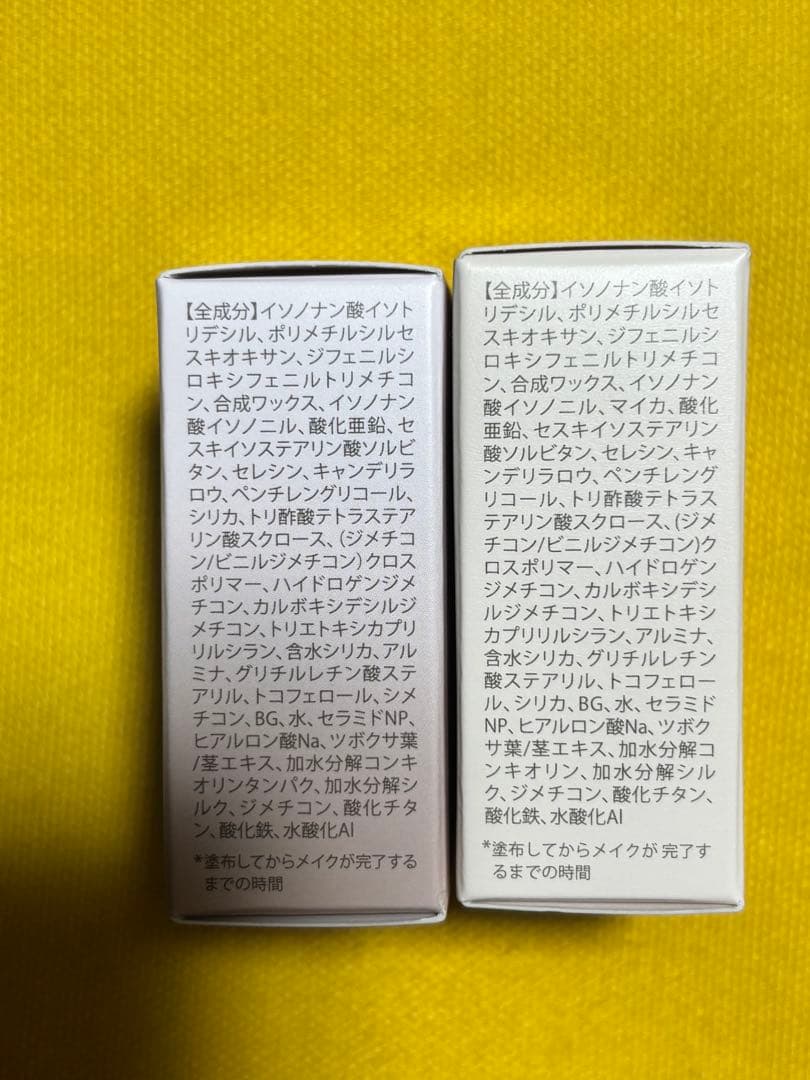 【全成分】イソノナン酸イソト
リデシル、ポリメチルシルセ
スキオキサン、ジフェニルシ
ロキシフェニルトリメチコ
ン、合成ワックス、イソノナン
酸イソノニル、酸化亜鉛、セ
スキイソステアリン酸ソルビ
タン、セレシン、キャンデリラ
ロウ、ペンチレングリコール、
シリカ、トリ酢酸テトラステア
リン酸スクロース、（ジメチコ
ン/ビニルジメチコン）クロス
ポリマー、ハイドロゲンジメ
チコン、カルボキシデシルジ
メチコン、トリエトキシカプリ
リルシラン、含水シリカ、アル
ミナ、グリチルレチン酸ステ
アリル、トコフェロール、シメ
チコン、BG、水、セラミドNP、
ヒアルロン酸Na、ツボクサ葉
/茎エキス、加水分解コンキ
オリンタンパク、加水分解シ
ルク、ジメチコン、酸化チタ
ン、酸化鉄、水酸化Al
*塗布してからメイクが完了する
までの時間
【全成分】イソノナン酸イソト
リデシル、ポリメチルシルセ
スキオキサン、ジフェニルシ
ロキシフェニルトリメチコ
ン、合成ワックス、イソノナン
酸イソノニル、マイカ、酸化
亜鉛、セスキイソステアリン
酸ソルビタン、セレシン、キャ
ンデリラロウ、ペンチレング
リコール、トリ酢酸テトラス
テアリン酸スクロース、(ジメ
チコン/ビニルジメチコン)ク
ロスポリマー、ハイドロゲン
ジメチコン、カルボキシデシ
ルジメチコン、トリエトキシ
カプリリルシラン、アルミナ、
含水シリカ、グリチルレチン
酸ステアリル、トコフェロー
ル、シリカ、BG、水、セラミド
NP、ヒアルロン酸Na、ツボク
サ葉/茎エキス、加水分解コ
ンキオリン、加水分解シル
ク、ジメチコン、酸化チタン、
酸化鉄、水酸化Al
*塗布してからメイクが完了す
るまでの時間